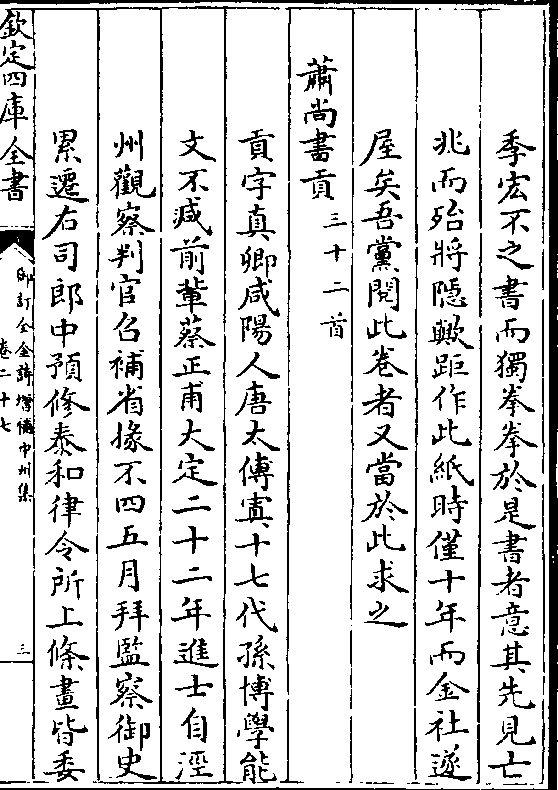 季宏不之書而獨拳拳於是書者意其先見亡
兆而殆將隱歟距作此紙時僅十年而金社遂
屋矣吾黨閱此卷者又當於此求之
蕭尚書貢三十二首
貢字真卿咸陽人唐太傅寘十七代孫博學能
文不減前輩蔡正甫大定二十二年進士自涇
州觀察判官召補省掾不四五月拜監察御史
累遷右司郎中預修泰和律令所上條畫皆委
欽定四庫全書
御訂全金詩增補中州集
卷二十七
三